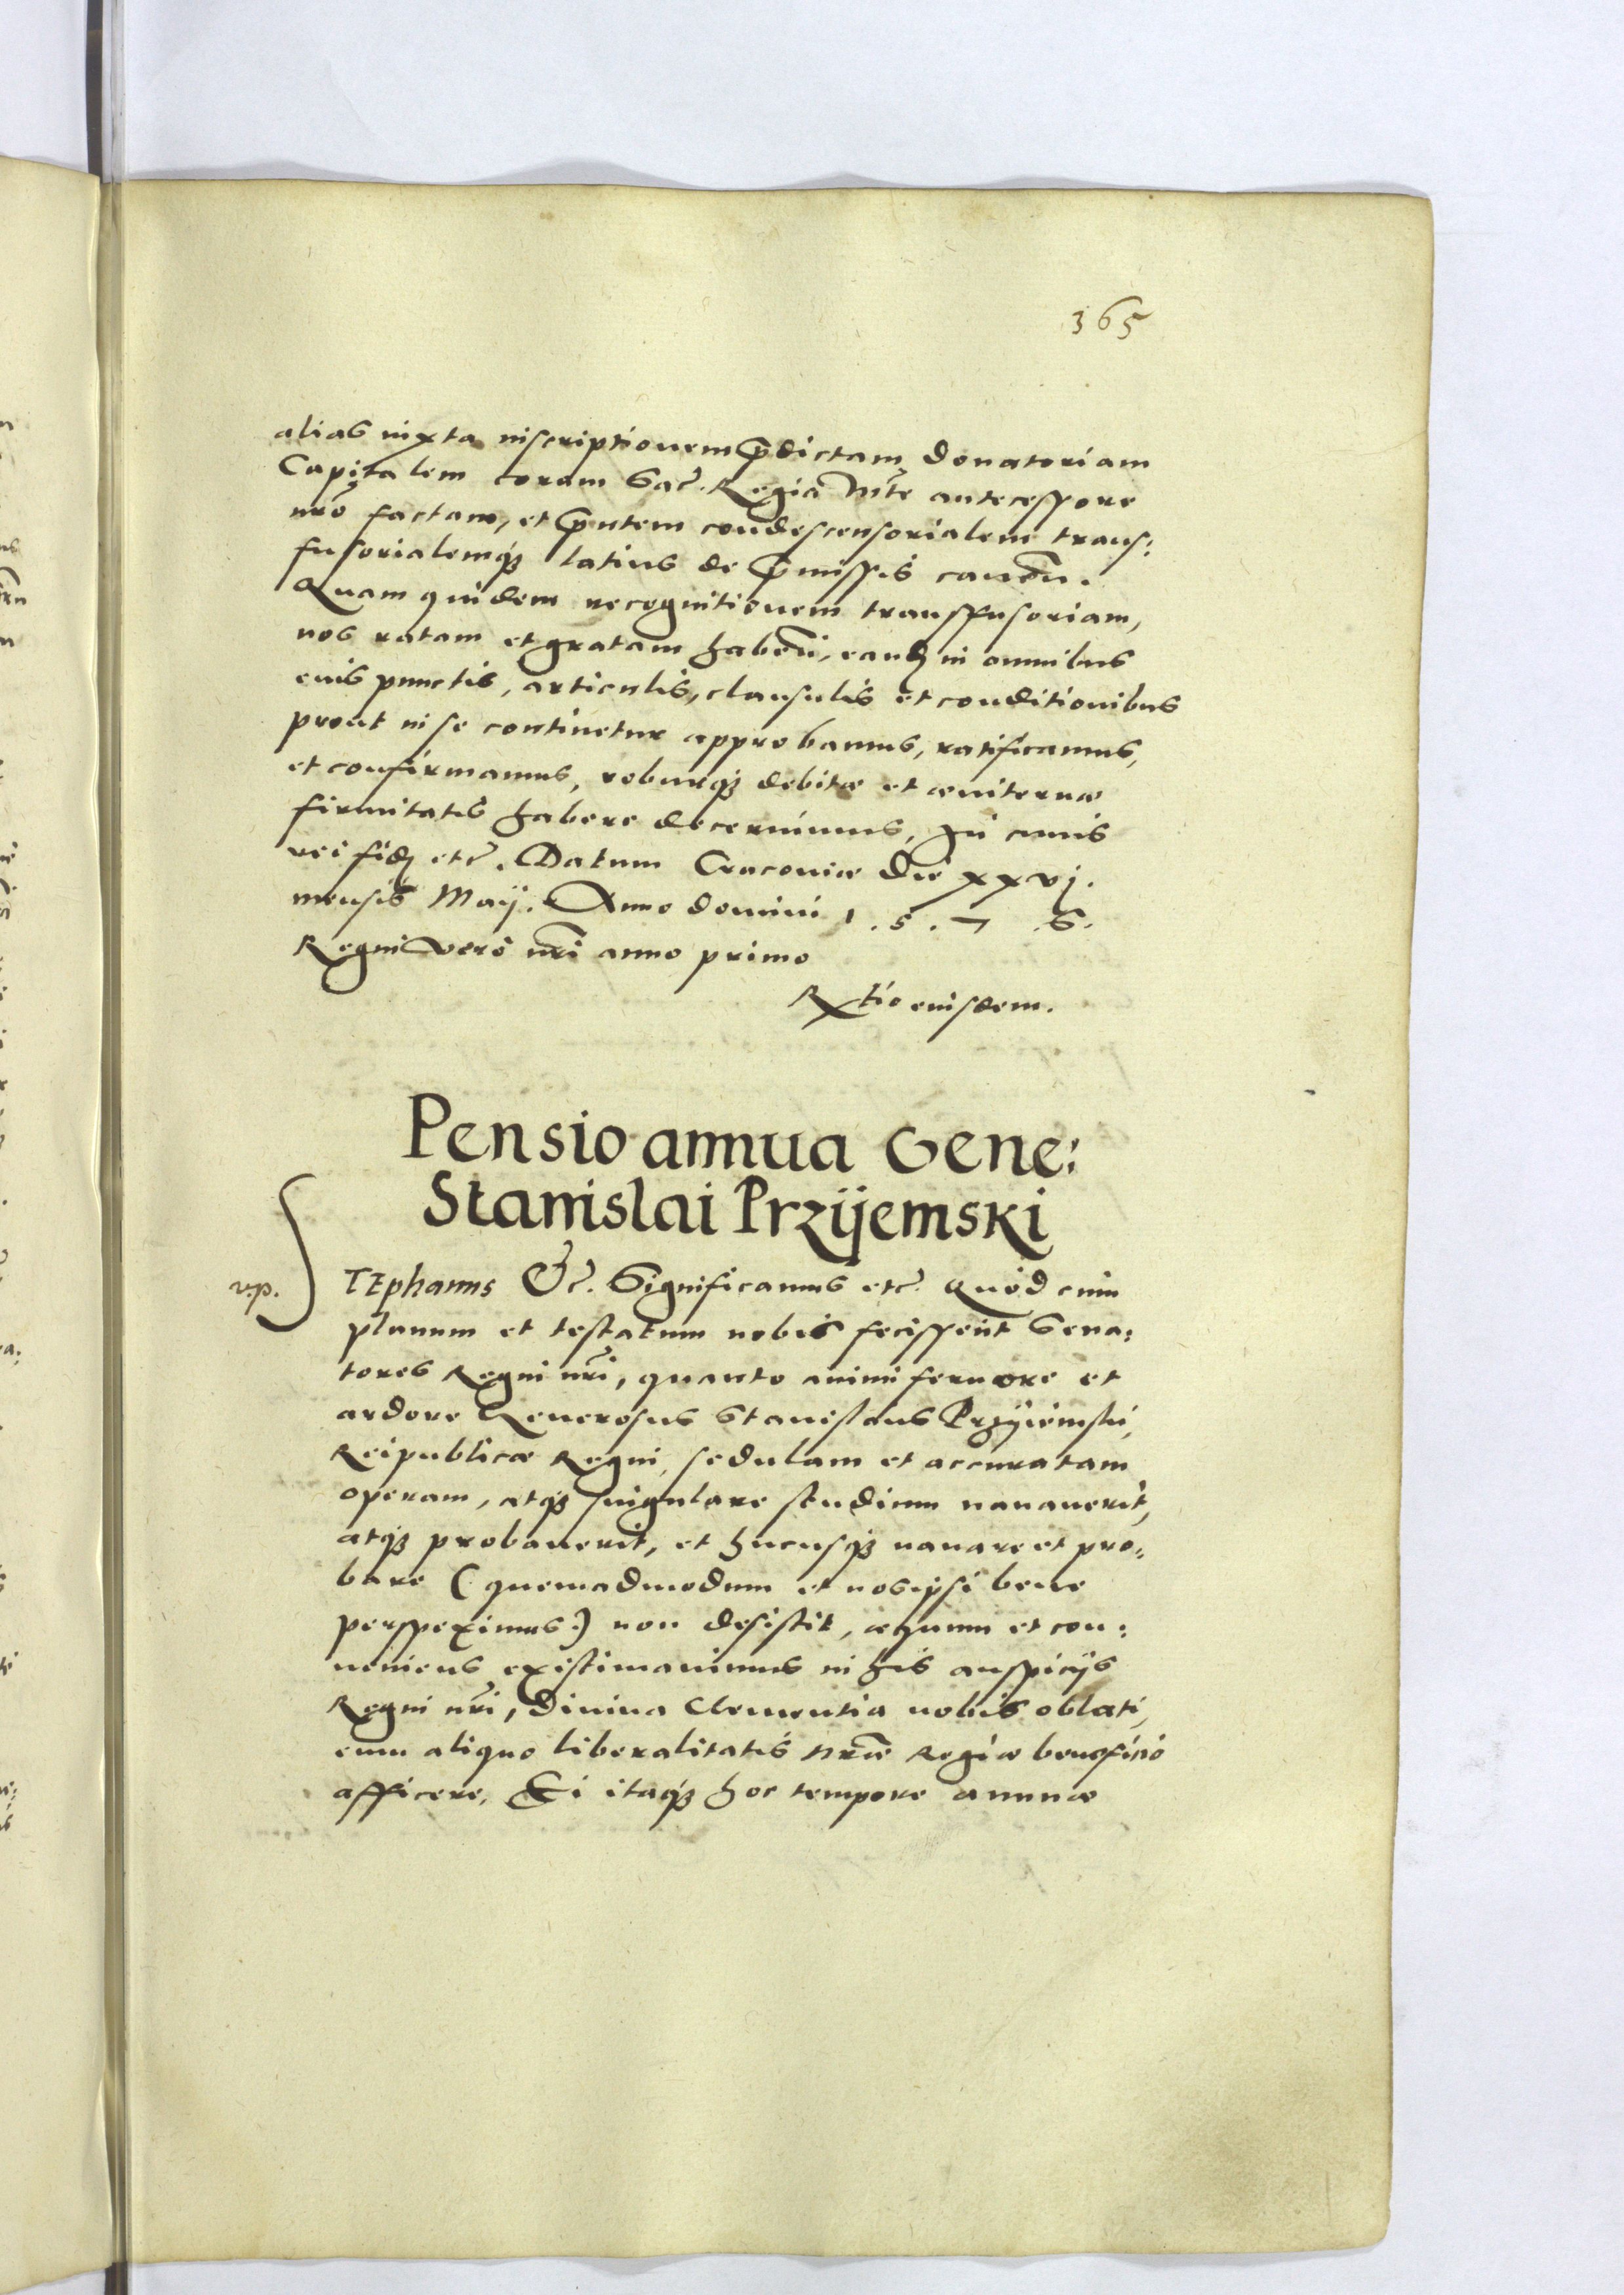 365
alias iuxta inscriptionem p̄dictam donatoriam
Capitalem coram Sac̄. Regia Mte antecessore
nr̄o factam, et p̄ntem condescensorialem trans:
fusorialemq̨ latius de p̄missis caueñ.
Quam quidem recognitionem transfusoriam,
nos ratam et gratam habeñ, eand in omnibus
eius punctis, articulis, clausulis et conditionibus
prout in se continetur approbamus, ratificamus,
et confirmamus, roburq̨ debitæ et æuiternæ
firmitatis habere decernimus, In cuius
rei fid etc̄. Datum Cracouiæ die xxvj.
mensis Maij. Anno domini 1.5.7 6.
Regni vero nr̄i anno primo
Rxtio eiusdem.
Pensio annua Gene:
Stanislai Przÿemski
v.p. STEphanus &c̄. Significamus etc̄ Quod cum
planum et testatum nobis fecissent Sena:
tores Regni nr̄i, quanto animi feruore et
ardore Generosus Stanislaus Przyiemski,
Reipublicæ Regni, sedulam et accuratam
operam, atq̨ singulare studium nauauerit,
atq̨ probauerit, et hucusq̨ nauare et pro:
bare (quemadmodum et nos ipsi bene
perspeximus) non desistit, æquum et con:
ueniens existimauimus in his auspicijs
Regni nr̄i, diuina Clementia nobis oblati,
eum aliquo liberalitatis nr̄æ Regiæ beneficio
afficere, Ei itaq̨ hoc tempore annuæ